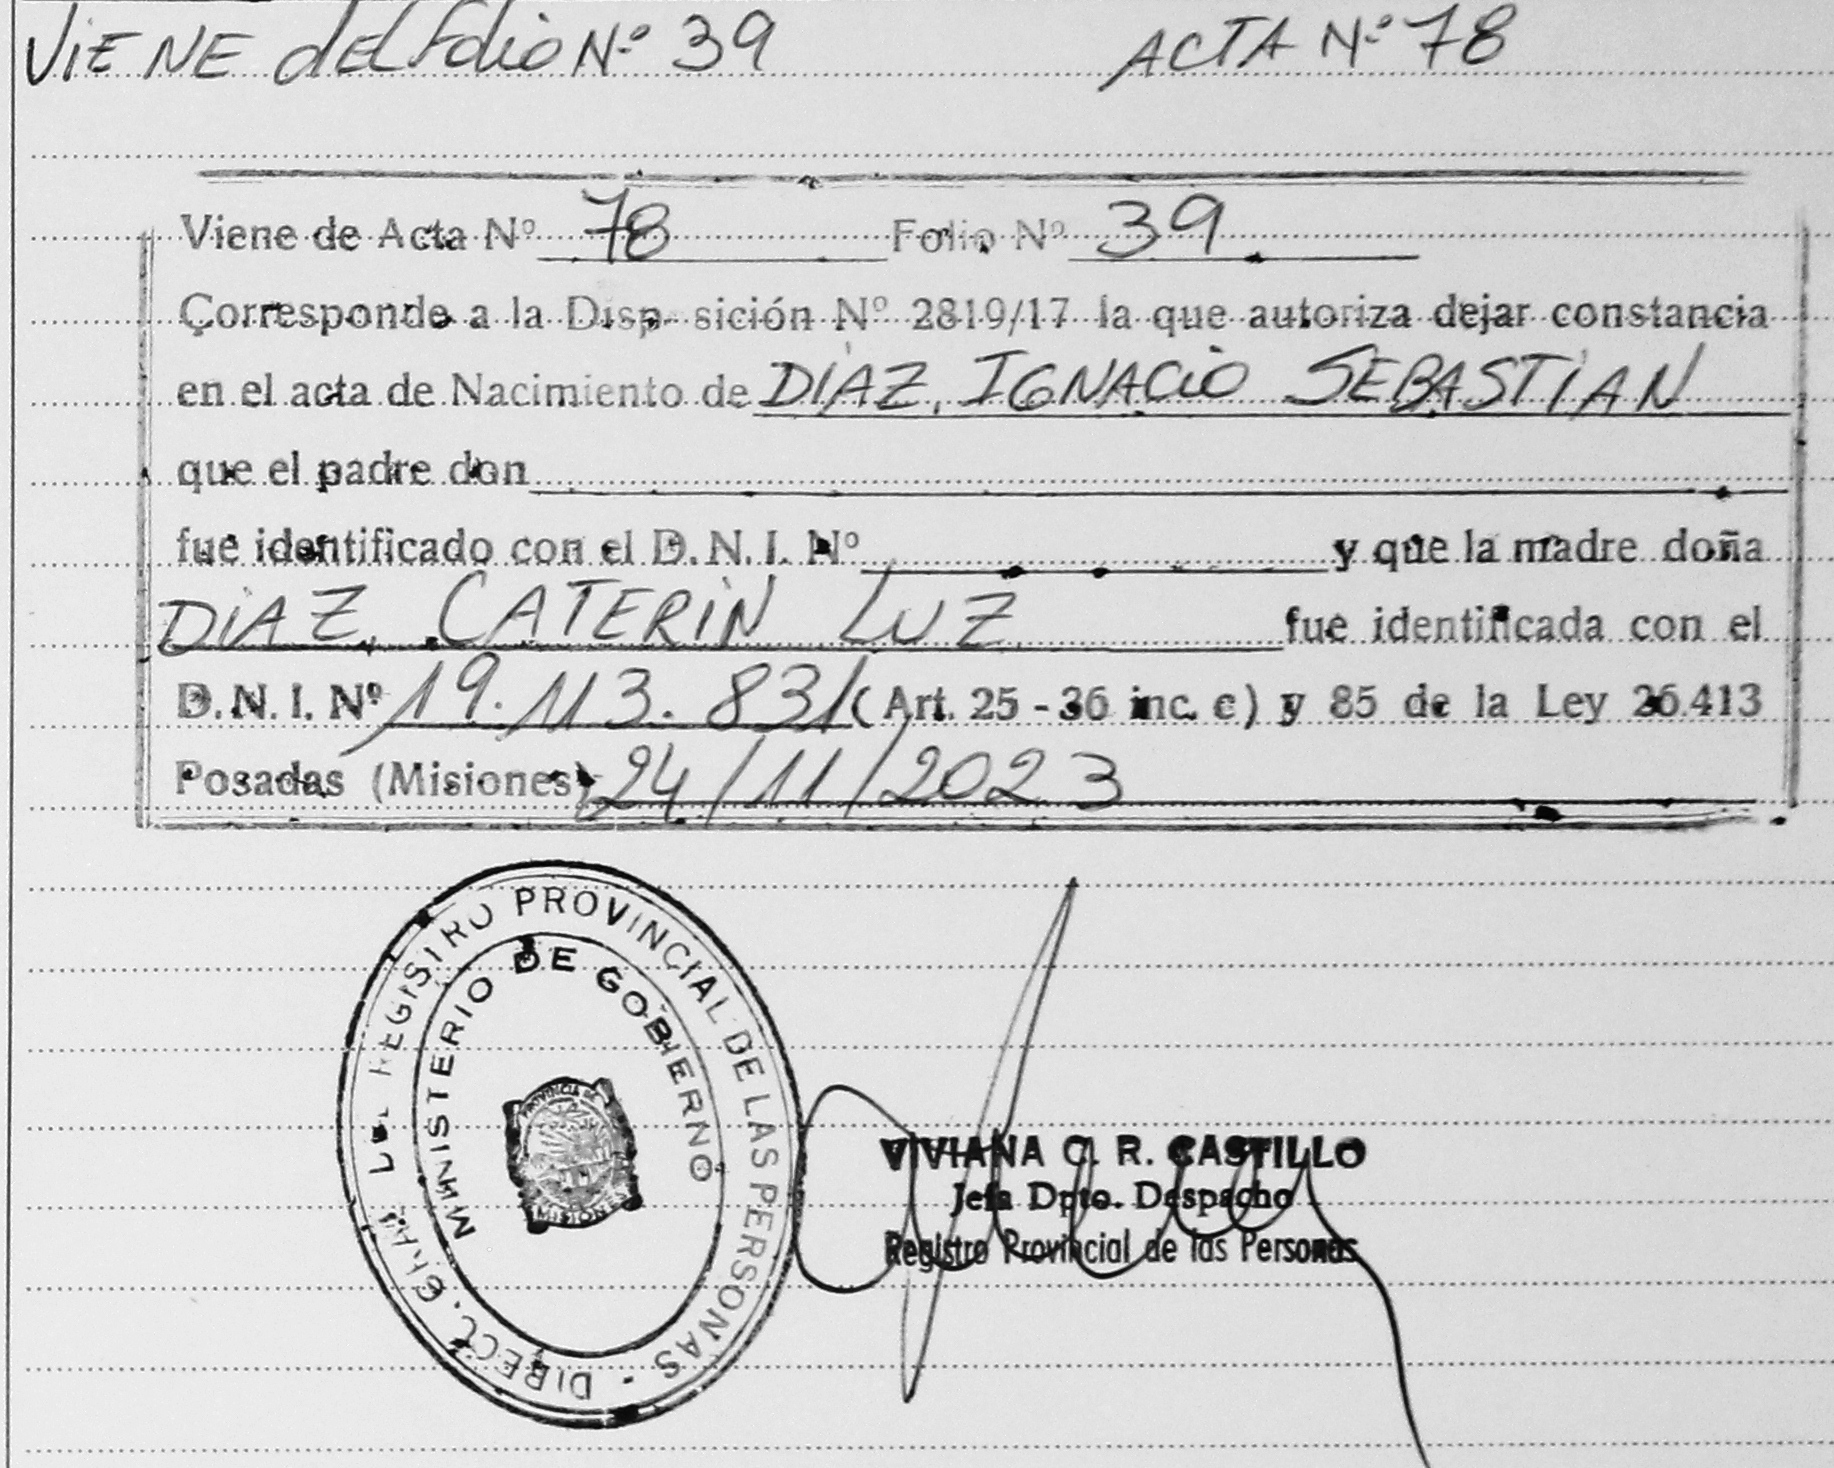 ViENE dEL Folio N.º 39 ACTA N.º 78
Viene de Acta Nº 78 Folio Nº 39
Corresponde a la Disp sición Nº 2819/17 la que autoriza dejar constancia
en el acta de Nacimiento de DIAZ, IGNACiO SEBASTiAN
que el padre don
fue identificado con el D.N.I. Nº y que la madre doña
DiAZ, CATERiN LUZ fue identificada con el
D.N.I. Nº 19.113.831 (Art. 25 - 36 inc. c) y 85 de la Ley 26.413
Posadas (Misiones) 24/11/2023
DIRECC. GRAL DEL REGISTRO PROVINCIAL DE LAS PERSONAS -
MINISTERIO DE GOBIERNO
PROVINCIA DE
MISIONES
VIVIANA C. R. CASTILLO
Jefa Dpto. Despacho
Registro Provincial de las Personas